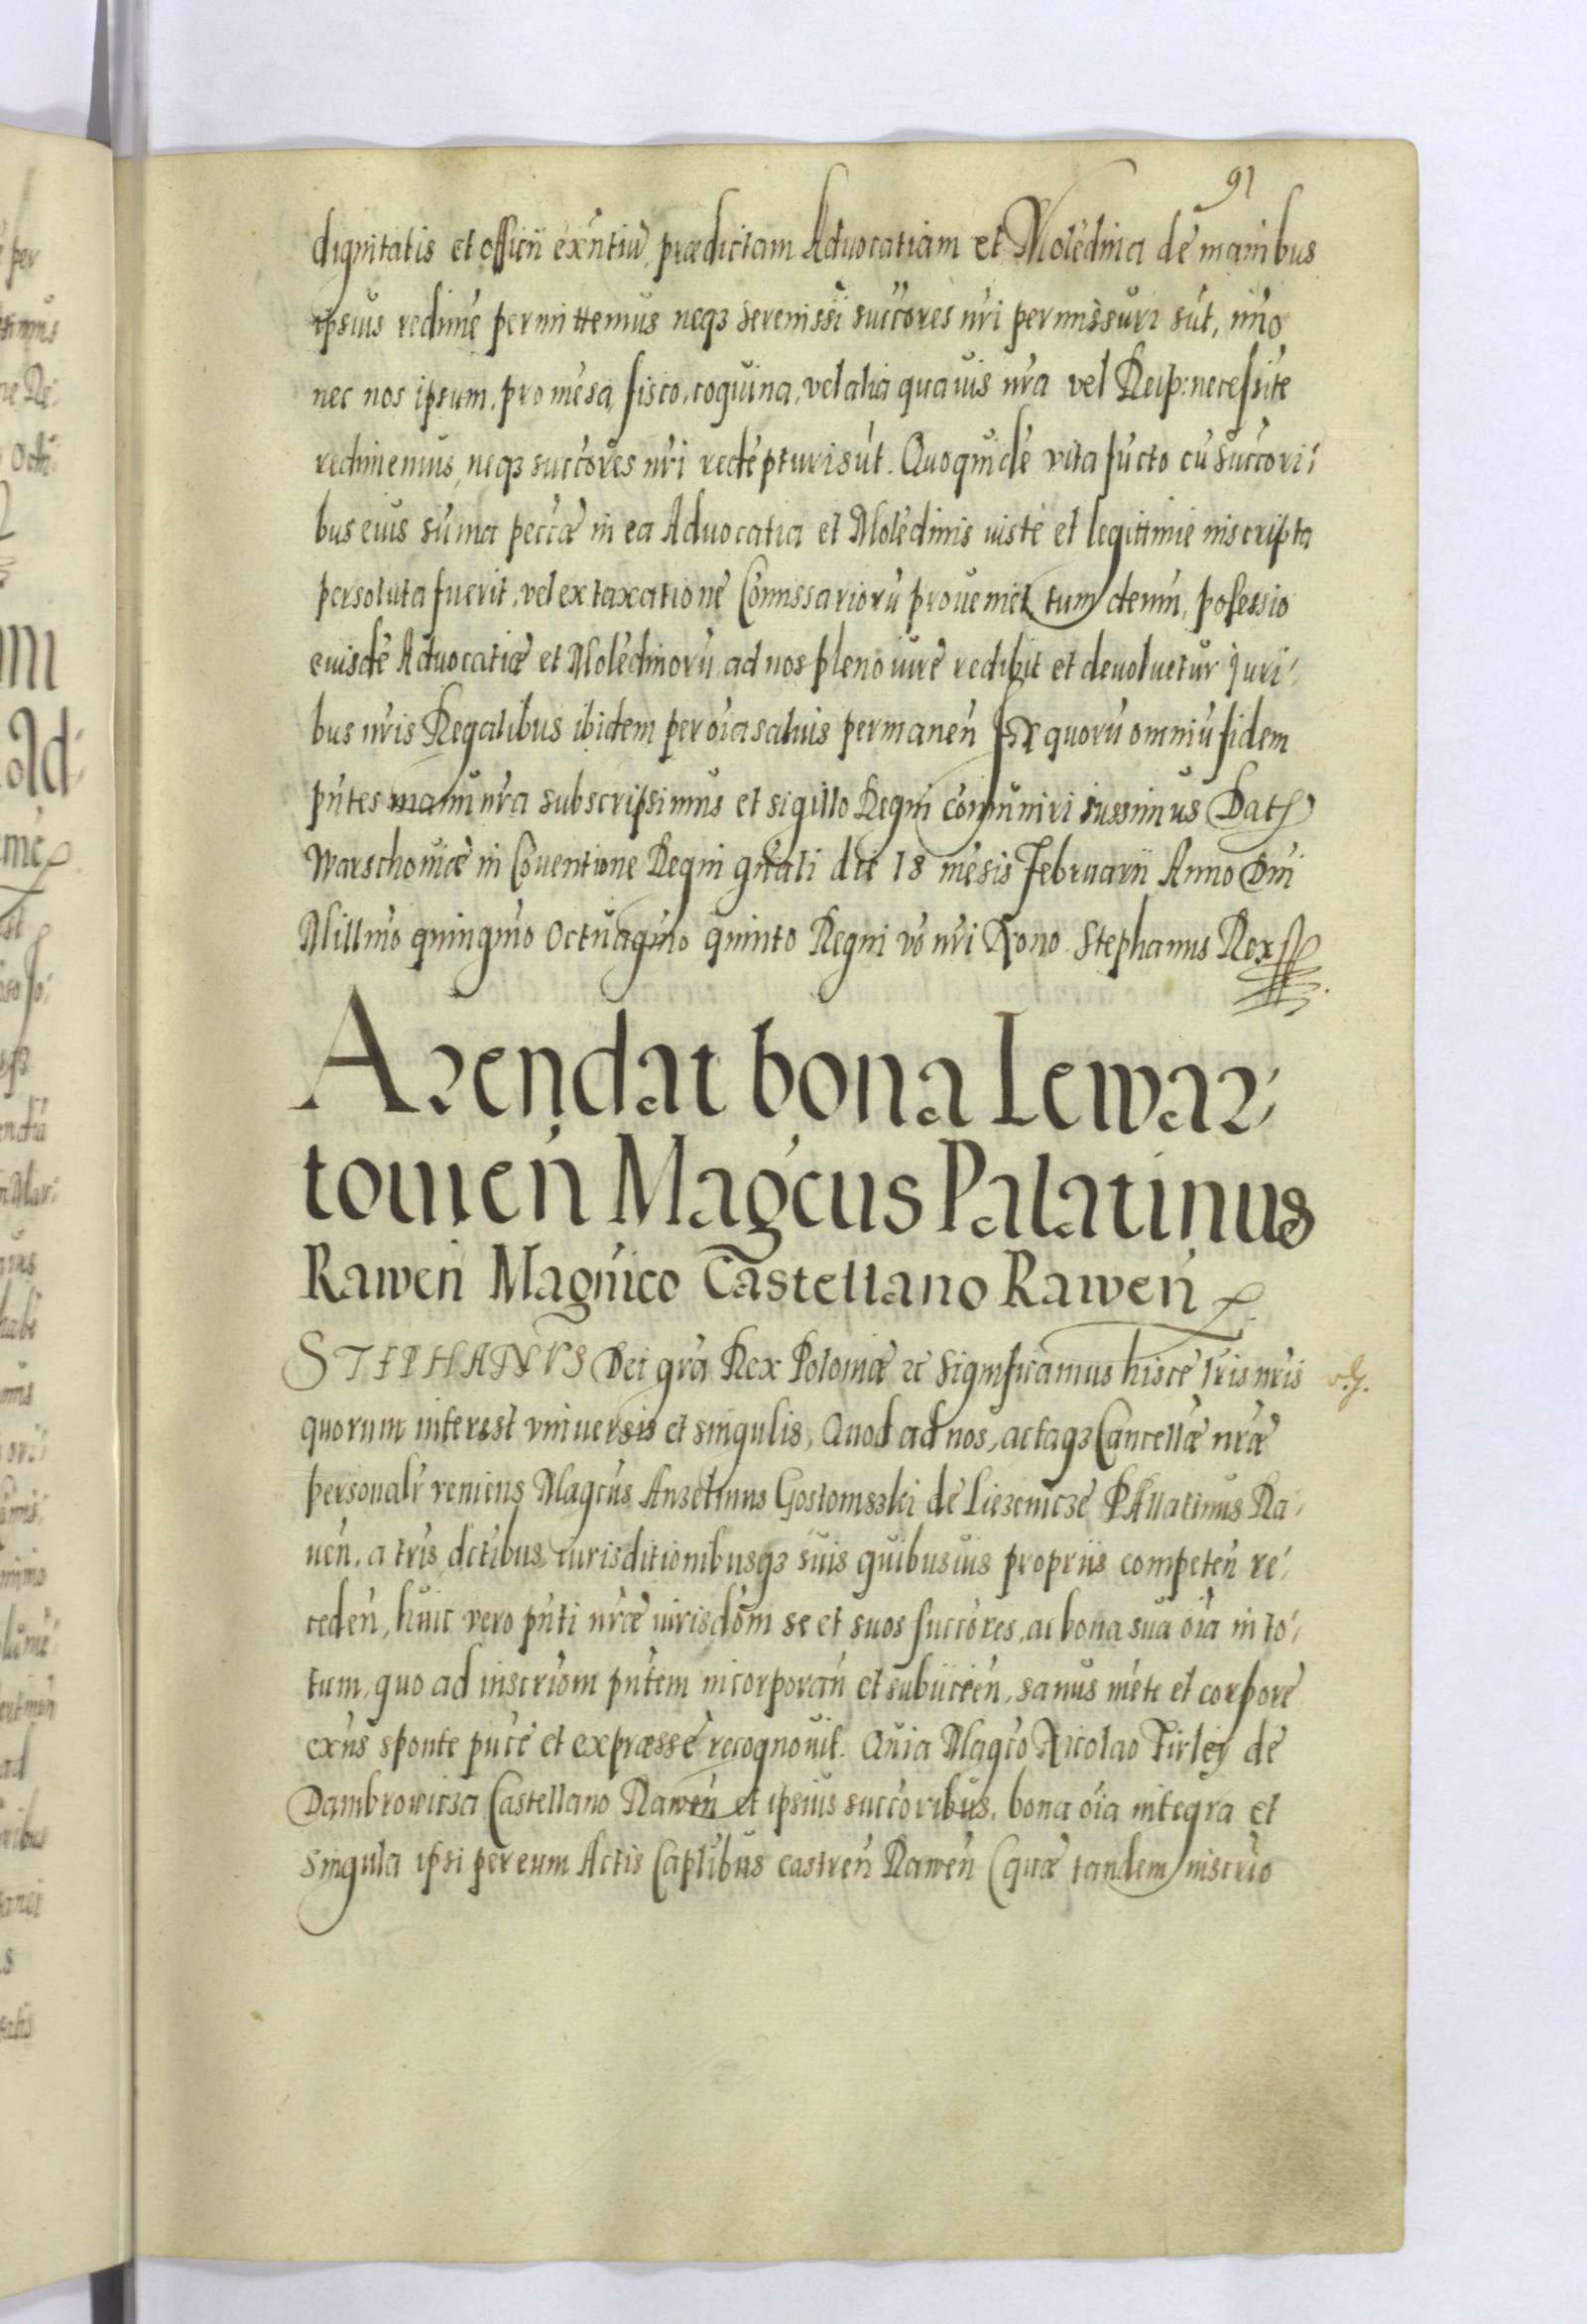 91
dignitatis et officii exn̄tiū, prædictam Aduocatiam et Molēdina de manibus
ipsius redime permittemus neqʒ serenissī succōres nr̄i permissuri sūt, imo
nec nos ipsum, pro mēsa, fisco, coquina, vel alia quauis nr̄a vel Reip: necessitē
redimemus, neqʒ succōres nr̄i redēpturi sūt. Quoquidē vita fūcto cū succori:
bus eius sūma pecc̄æ in ea Aduocatia et Molēdinis iuste et legittime inscripta
persoluta fuerit, vel ex taxatione Com̄issariorū proueniet tum demū, possessio
eiusdē Aduocatiæ et Molēdinorū, ad nos pleno iure redibit et deuoluetur juri:
bus nr̄is Regalibus ibidem per oīa saluis permanen̄ Ex quorū omniū fidem
pn̄tes manu nr̄a subscripsimus et sigillo Regni com̄uniri iussimus Dat
Warschouiæ in Cōuentione Regni gn̄ali die 18 mēsis Februarii Anno Dn̄i
Millm̄o quingm̄o Octuagm̄o quinto Regni vō nr̄i Nono Stephanus Rex
Arendat bona Lewar:
touien̄ Magc̄us Palatinus
Rawen̄ Magn̄ico Castellano Rawen̄
STEPHANVS Dei gr̄a Rex Poloniæ ꝛc Significamus hisce lr̄is nr̄is
quorum interest vniuersis et singulis, Quod ad nos, actaqʒ Cancellæ nr̄æ
personalr̄ veniens Magc̄us Anzelmus Gostomszki de Liezenicze PAllatinus Ra:
uen̄, a tr̄is dctībus, iurisditionibusqʒ suis quibusuis propriis competen̄ re:
ceden̄, huic vero pn̄ti nr̄æ iurisdōni se et suos succōres, ac bona sua oīa in to:
tum, quo ad inscrīom pn̄tem incorporan̄ et subiicien̄, sanus mēte et corpore
exn̄s sponte pūce et expræsse recognouit. Quia Magc̄o Nicolao Firley de
Dambrowicza Castellano Rawen̄ et ipsius succōribus, bona oīa integra et
singula ipsi per eum Actis Capl̄ibus castren̄ Rawen̄ (quæ tandem inscrīo